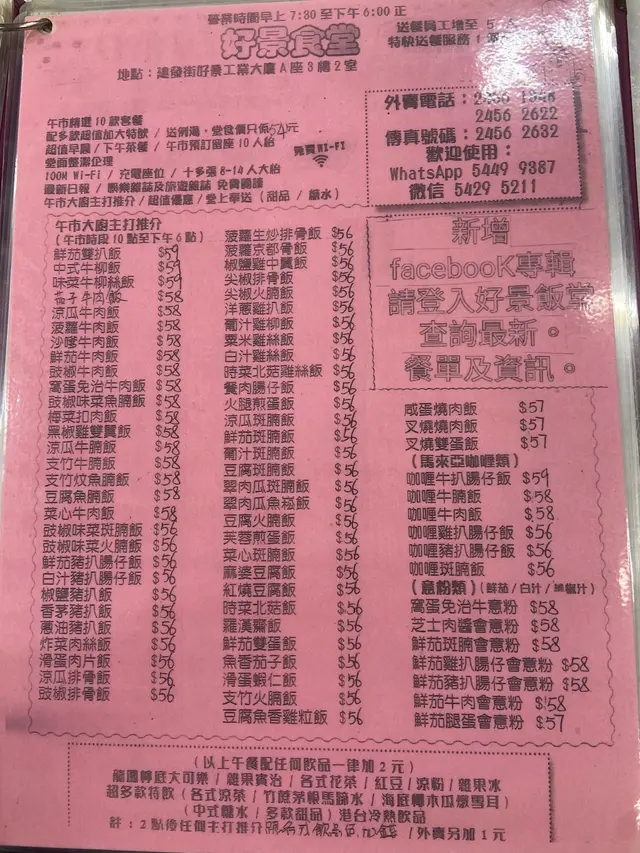 營業時間早上 7:30 至下午 6:00 正
好景食堂
送餐員工增至 5
特快送餐服務
地點：建發街好景工業大廈 A 座 3 樓 2 室
外賣電話：2456
2456 2622
傳真號碼：2456 2632
歡迎使用：
WhatsApp 5449 9387
微信 5429 5211
午市精選 10 款客餐
配多款超值加大特飲 / 送例湯，堂食價只係 54元
超值早晨 / 下午茶餐 / 午市預訂留座 10 人枱
堂面整潔企理
100M Wi-Fi / 充電座位 / 十多張 8-14 人大枱
最新日報 / 娛樂雜誌及旅遊雜誌 免費閱讀
午市大廚主打推介 / 超值優惠 / 堂上奉送 (甜品 / 鹹水)
免費 WI-FI
午市大廚主打推介
(午市時段 10 點至下午 6 點)
鮮茄雙扒飯 $59
中式牛柳飯 $59
味菜牛柳絲飯 $59
茄子牛肉飯 $58
涼瓜牛肉飯 $58
菠蘿牛肉飯 $58
沙嗲牛肉飯 $58
鮮茄牛肉飯 $58
豉椒牛肉飯 $58
窩蛋免治牛肉飯 $58
豉椒味菜魚腩飯 $58
梅菜扣肉飯 $58
黑椒雞雙翼飯 $58
涼瓜牛腩飯 $58
支竹牛腩飯 $58
支竹炆魚腩飯 $58
豆腐魚腩飯 $58
菜心牛肉飯 $58
豉椒味菜斑腩飯 $56
豉椒味菜火腩飯 $56
鮮茄豬扒腸仔飯 $56
白汁豬扒腸仔飯 $56
椒鹽豬扒飯 $56
香茅豬扒飯 $56
蔥油豬扒飯 $56
炸菜肉絲飯 $56
滑蛋肉片飯 $56
涼瓜排骨飯 $56
豉椒排骨飯 $56
菠蘿生炒排骨飯 $56
菠蘿京都骨飯 $56
椒鹽雞中翼飯 $56
尖椒排骨飯 $56
尖椒火腩飯 $56
洋蔥雞扒飯 $56
葡汁雞柳飯 $56
粟米雞絲飯 $56
白汁雞絲飯 $56
時菜北菇雞絲飯 $56
餐肉腸仔飯 $56
火腿煎蛋飯 $56
涼瓜斑腩飯 $56
鮮茄斑腩飯 $56
葡汁斑腩飯 $56
豆腐斑腩飯 $56
翠肉瓜斑腩飯 $56
翠肉瓜魚崧飯 $56
豆腐火腩飯 $56
芙蓉煎蛋飯 $56
菜心斑腩飯 $56
麻婆豆腐飯 $56
紅燒豆腐飯 $56
時菜北菇飯 $56
羅漢齋飯 $56
鮮茄雙蛋飯 $56
魚香茄子飯 $56
滑蛋蝦仁飯 $56
支竹火腩飯 $56
豆腐魚香雞粒飯 $56
新增
facebooK專輯
請登入好景飯堂
查詢最新。
餐單及資訊。
咸蛋燒肉飯 $57
叉燒燒肉飯 $57
叉燒雙蛋飯 $57
(馬來亞咖喱類)
咖喱牛扒腸仔飯 $59
咖喱牛腩飯 $58
咖喱牛肉飯 $58
咖喱雞扒腸仔飯 $56
咖喱豬扒腸仔飯 $56
咖喱斑腩飯 $56
(意粉類) (鮮茄 / 白汁 / 燒椒汁)
窩蛋免治牛意粉 $58
芝士肉醬會意粉 $58
鮮茄斑腩會意粉 $58
鮮茄雞扒腸仔會意粉 $58
鮮茄豬扒腸仔會意粉 $58
鮮茄牛肉會意粉 $58
鮮茄腿蛋會意粉 $57
(以上午餐配任何飲品一律加 2 元)
龍鳳檸底大可樂 / 雜果賓治 / 各式花茶 / 紅豆 / 涼粉 / 雜果冰
超多款特飲 (各式涼茶 / 竹蔗茅根馬蹄水 / 海底椰木瓜燉雪耳)
(中式糖水 / 多款甜品) 港台冷熱飲品
註：2 點後任何主打推介 / 外賣另加 1 元